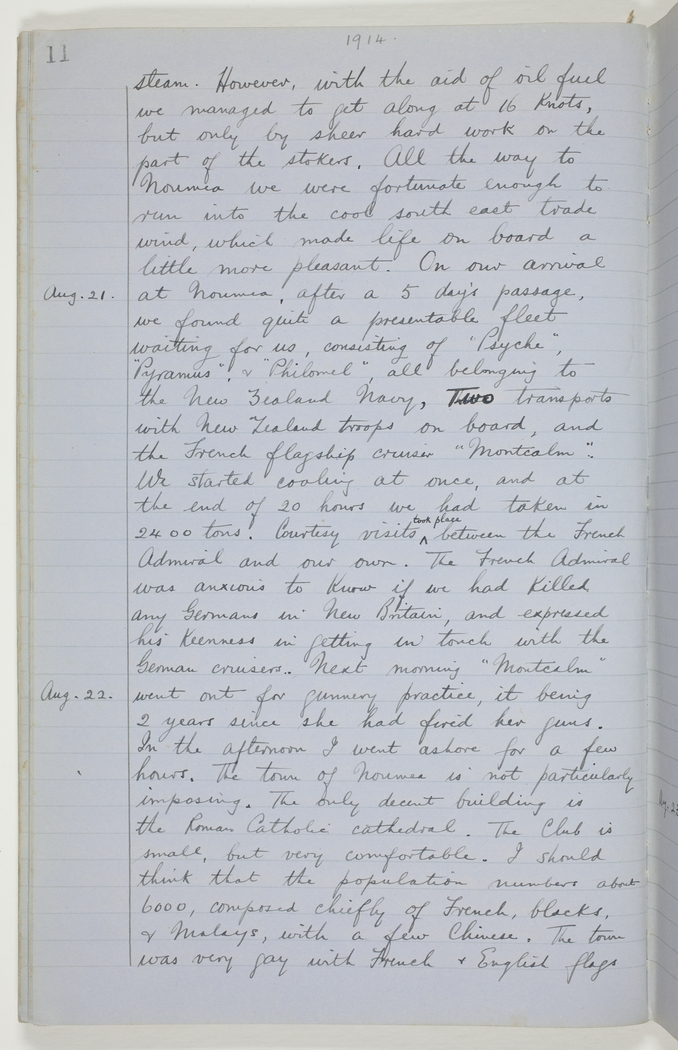 11
1914.
steam. However, with the aid of oil fuel
we managed to get along at 16 Knots,
but only by sheer hard work on the
part of the stokers. All the way to
Noumea we were fortunate enough to
run into the cool south east trade
wind, which made life on board a
little more pleasant. On our arrival
Aug. 21. at Noumea, after a 5 day's passage,
we found quite a presentable fleet
waiting for us, consisting of "Psyche",
"Pyramus", & "Philomel", all belonging to
the New Zealand Navy, Two transports
with New Zealand troops on board, and
the French flagship cruiser "Montcalm".
We started coaling at once, and at
the end of 20 hours we had taken in
took place
2400 tons. Courtesy visits ^ between the French
Admiral and our own. The French Admiral
was anxious to know if we had killed
any Germans in New Britain, and expressed
his keenness in getting in touch with the
German cruisers.. Next morning "Montcalm"
Aug. 22. went out for gunnery practice, it being
2 years since she had fired her guns.
In the afternoon I went ashore for a few
hours. The town of Noumea is not particularly
imposing. The only decent building is
the Roman Catholic cathedral. The Club is
small, but very comfortable. I should
think that the population numbers about
6000, composed chiefly of French, blacks,
& Malays, with a few Chinese. The town
was very gay with French & English flags